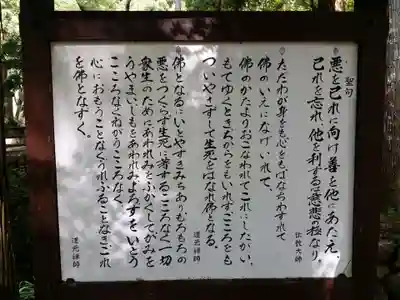 聖句
◎悪を己れに向け善を他にあたえ、
己れを忘れ、他を利するは慈悲の極なり。
伝教大師
◎ただわが身をも心をもはなちわすれて
佛のいえになげいれて、
佛のかたよりおこなわれてこれにしたがい、
もてゆくとき、ちからをもいれず、こころをも
ついやさずして生死をはなれ佛となる。
道元禅師
◎佛となるにいとやすきみちあり、もろもろの
悪をつくらず、生死に著するこころなく、一切
衆生のためにあわれみをふかくして、かみを
うやまい、しもをあわれみ、よろずをいとう
こころなく、ねがうこころなく、
心におもうことなくうれふることなき、これ
を佛となずく。
道元禅師